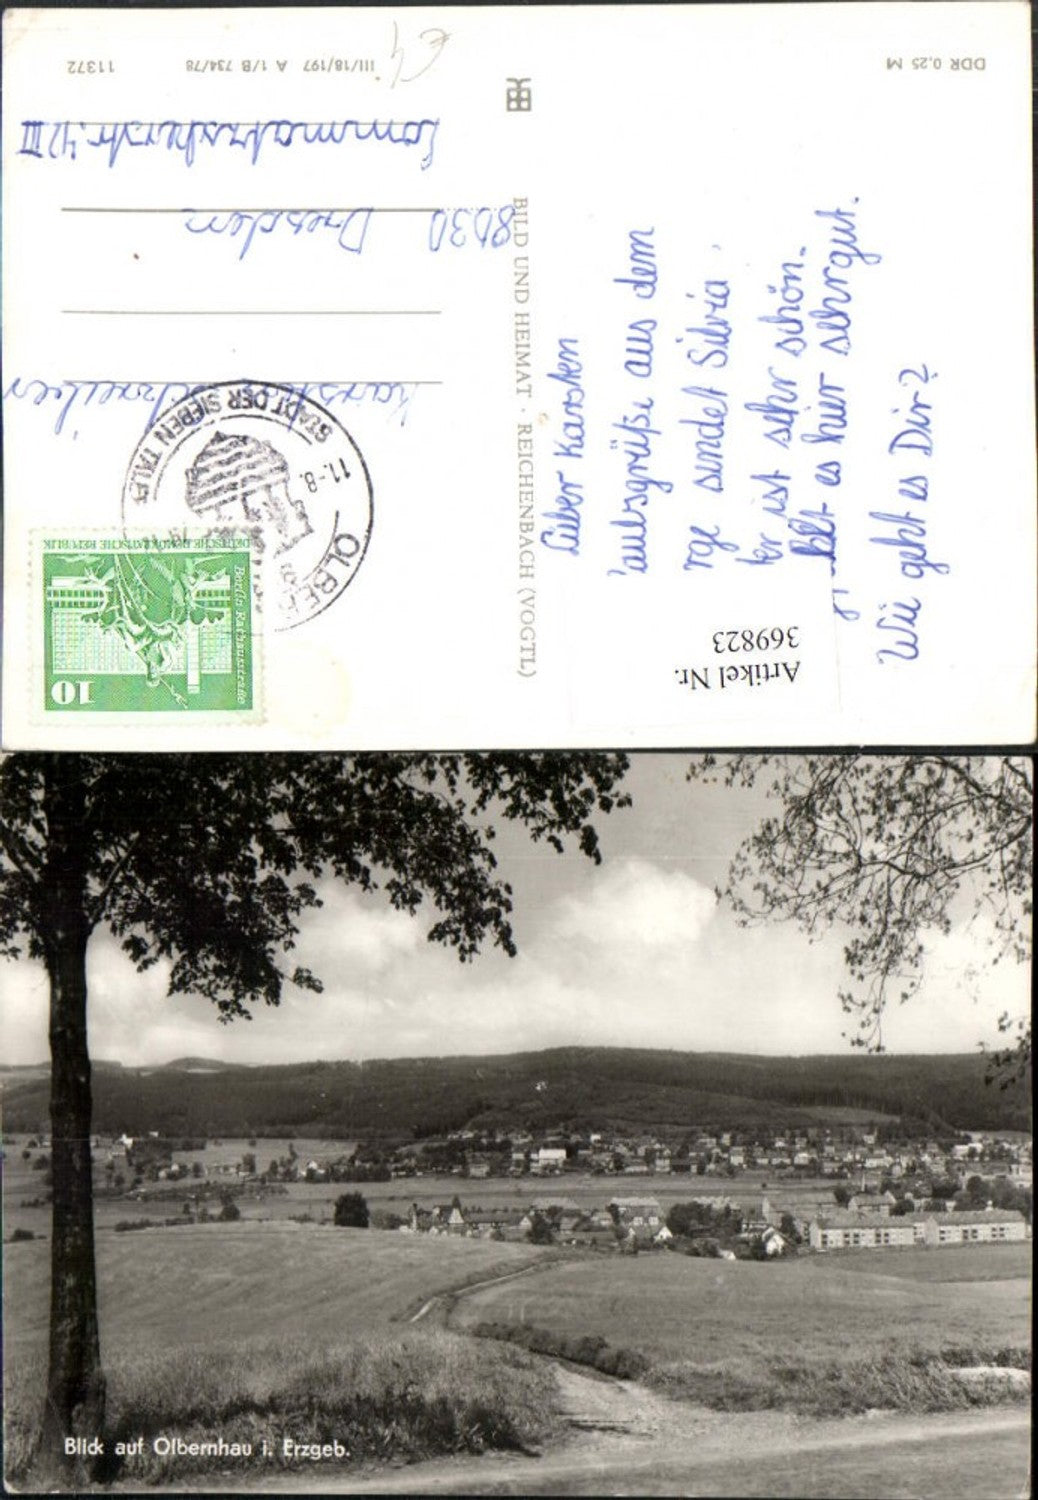 DDR 0,25 M
III/18/197 A 1/B 734/78
11372
BILD UND HEIMAT · REICHENBACH (VOGTL)
Lieber Karsten
aus dem
sendet Silvia.
ist sehr schön.
es hier sehr gut.
Wie geht es Dir?
Artikel Nr.
369823
8030 Dresden
Lommatzscherstr. 42 III
€ 4
STADT DER SIEBEN TÄLER
11.-8.
OLBER
DEUTSCHE DEMOKRATISCHE REPUBLIK
Berlin Rathausstraße
10
Blick auf Olbernhau i. Erzgeb.